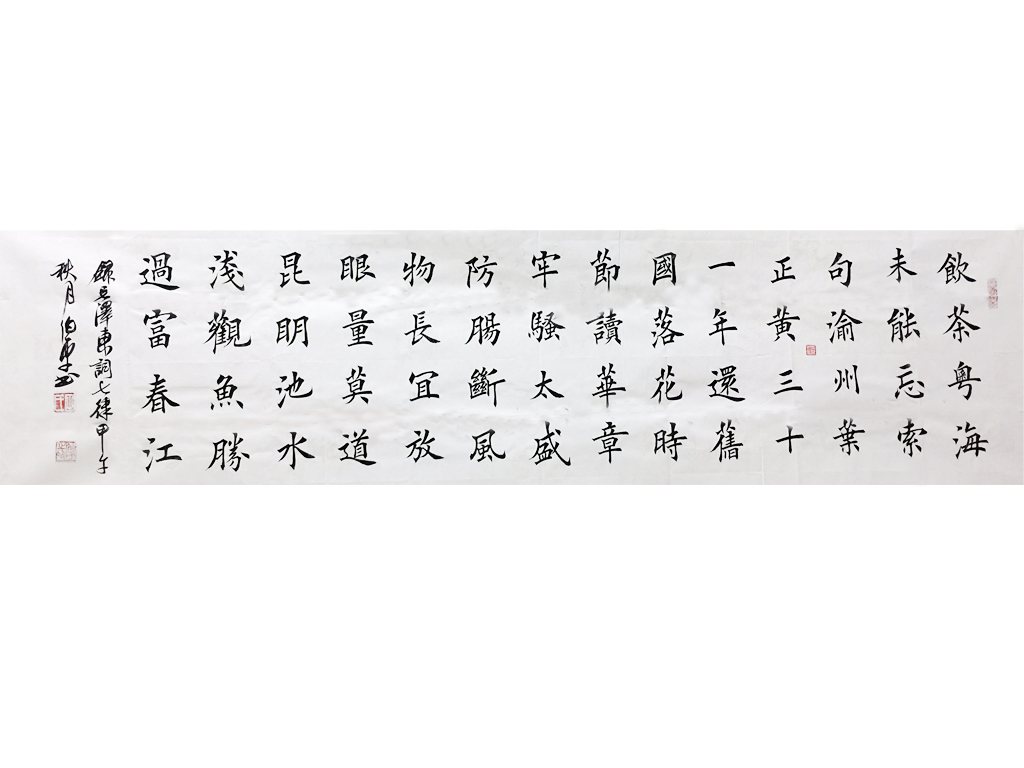 飲茶粵海
未能忘索
句渝州葉
正黃三十
一年還舊
國落花時
節讀華章
牢騷太盛
防腸斷風
物長冝放
眼量莫道
昆明池水
淺觀魚勝
過富春江
錄毛澤東詞七律甲午
秋月